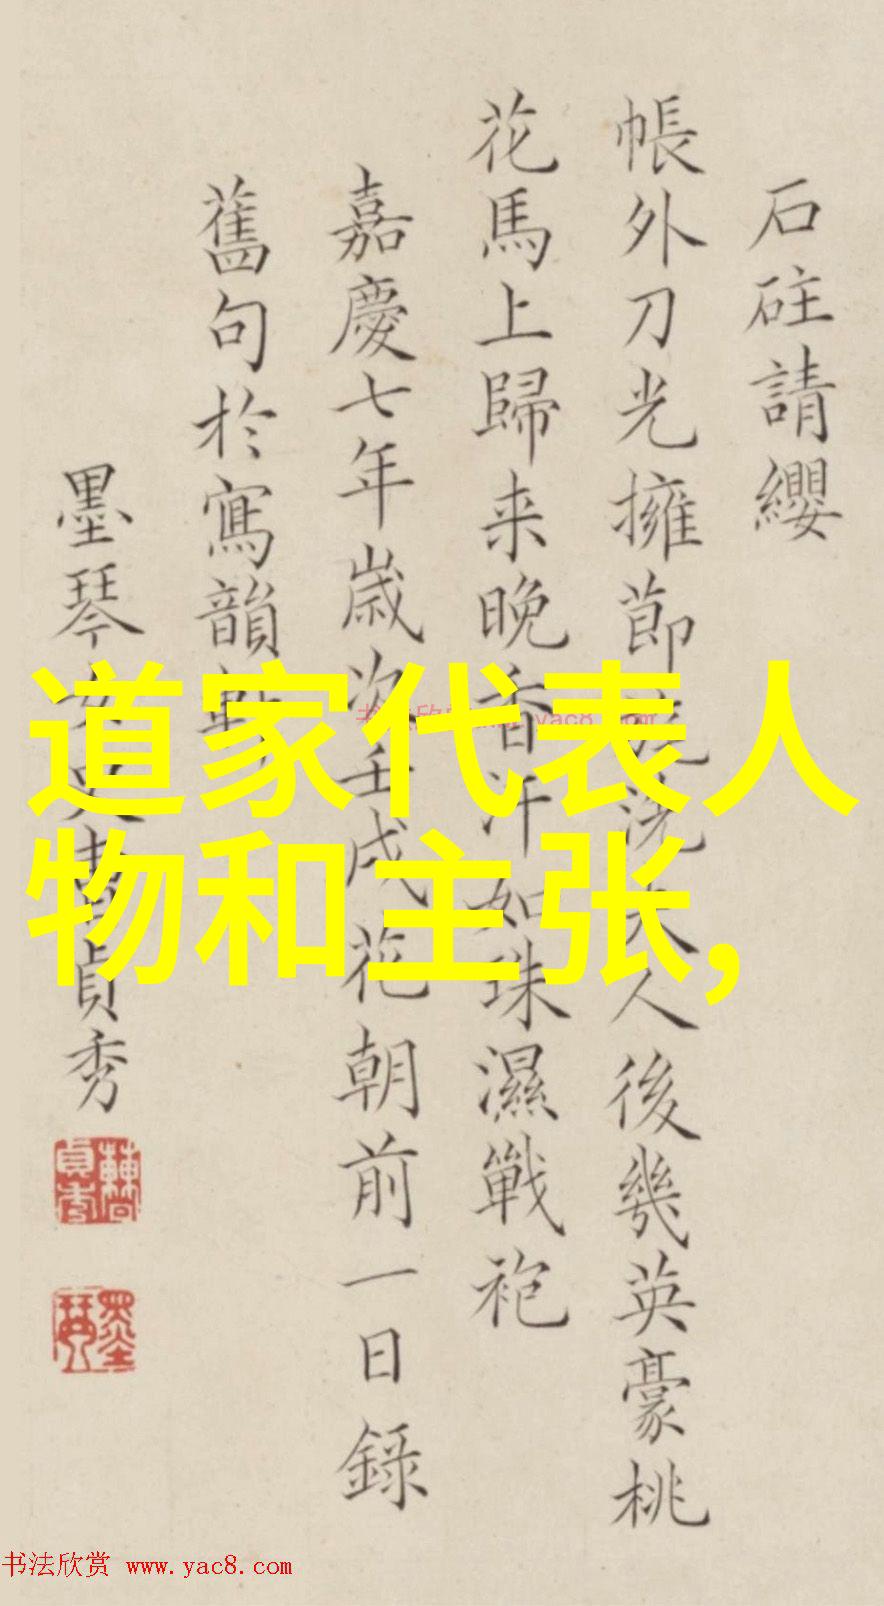 石砫請纓
帳外刀光擁節旄洗夫人後幾英豪桃
花馬上歸来晚香汗如珠濕戰袍
嘉慶七年歲次壬戌花朝前一日錄
舊句於寫韻軒
墨琴女史曹貞秀
道家代表人
物和主张,
书法欣赏 www.yac8.com